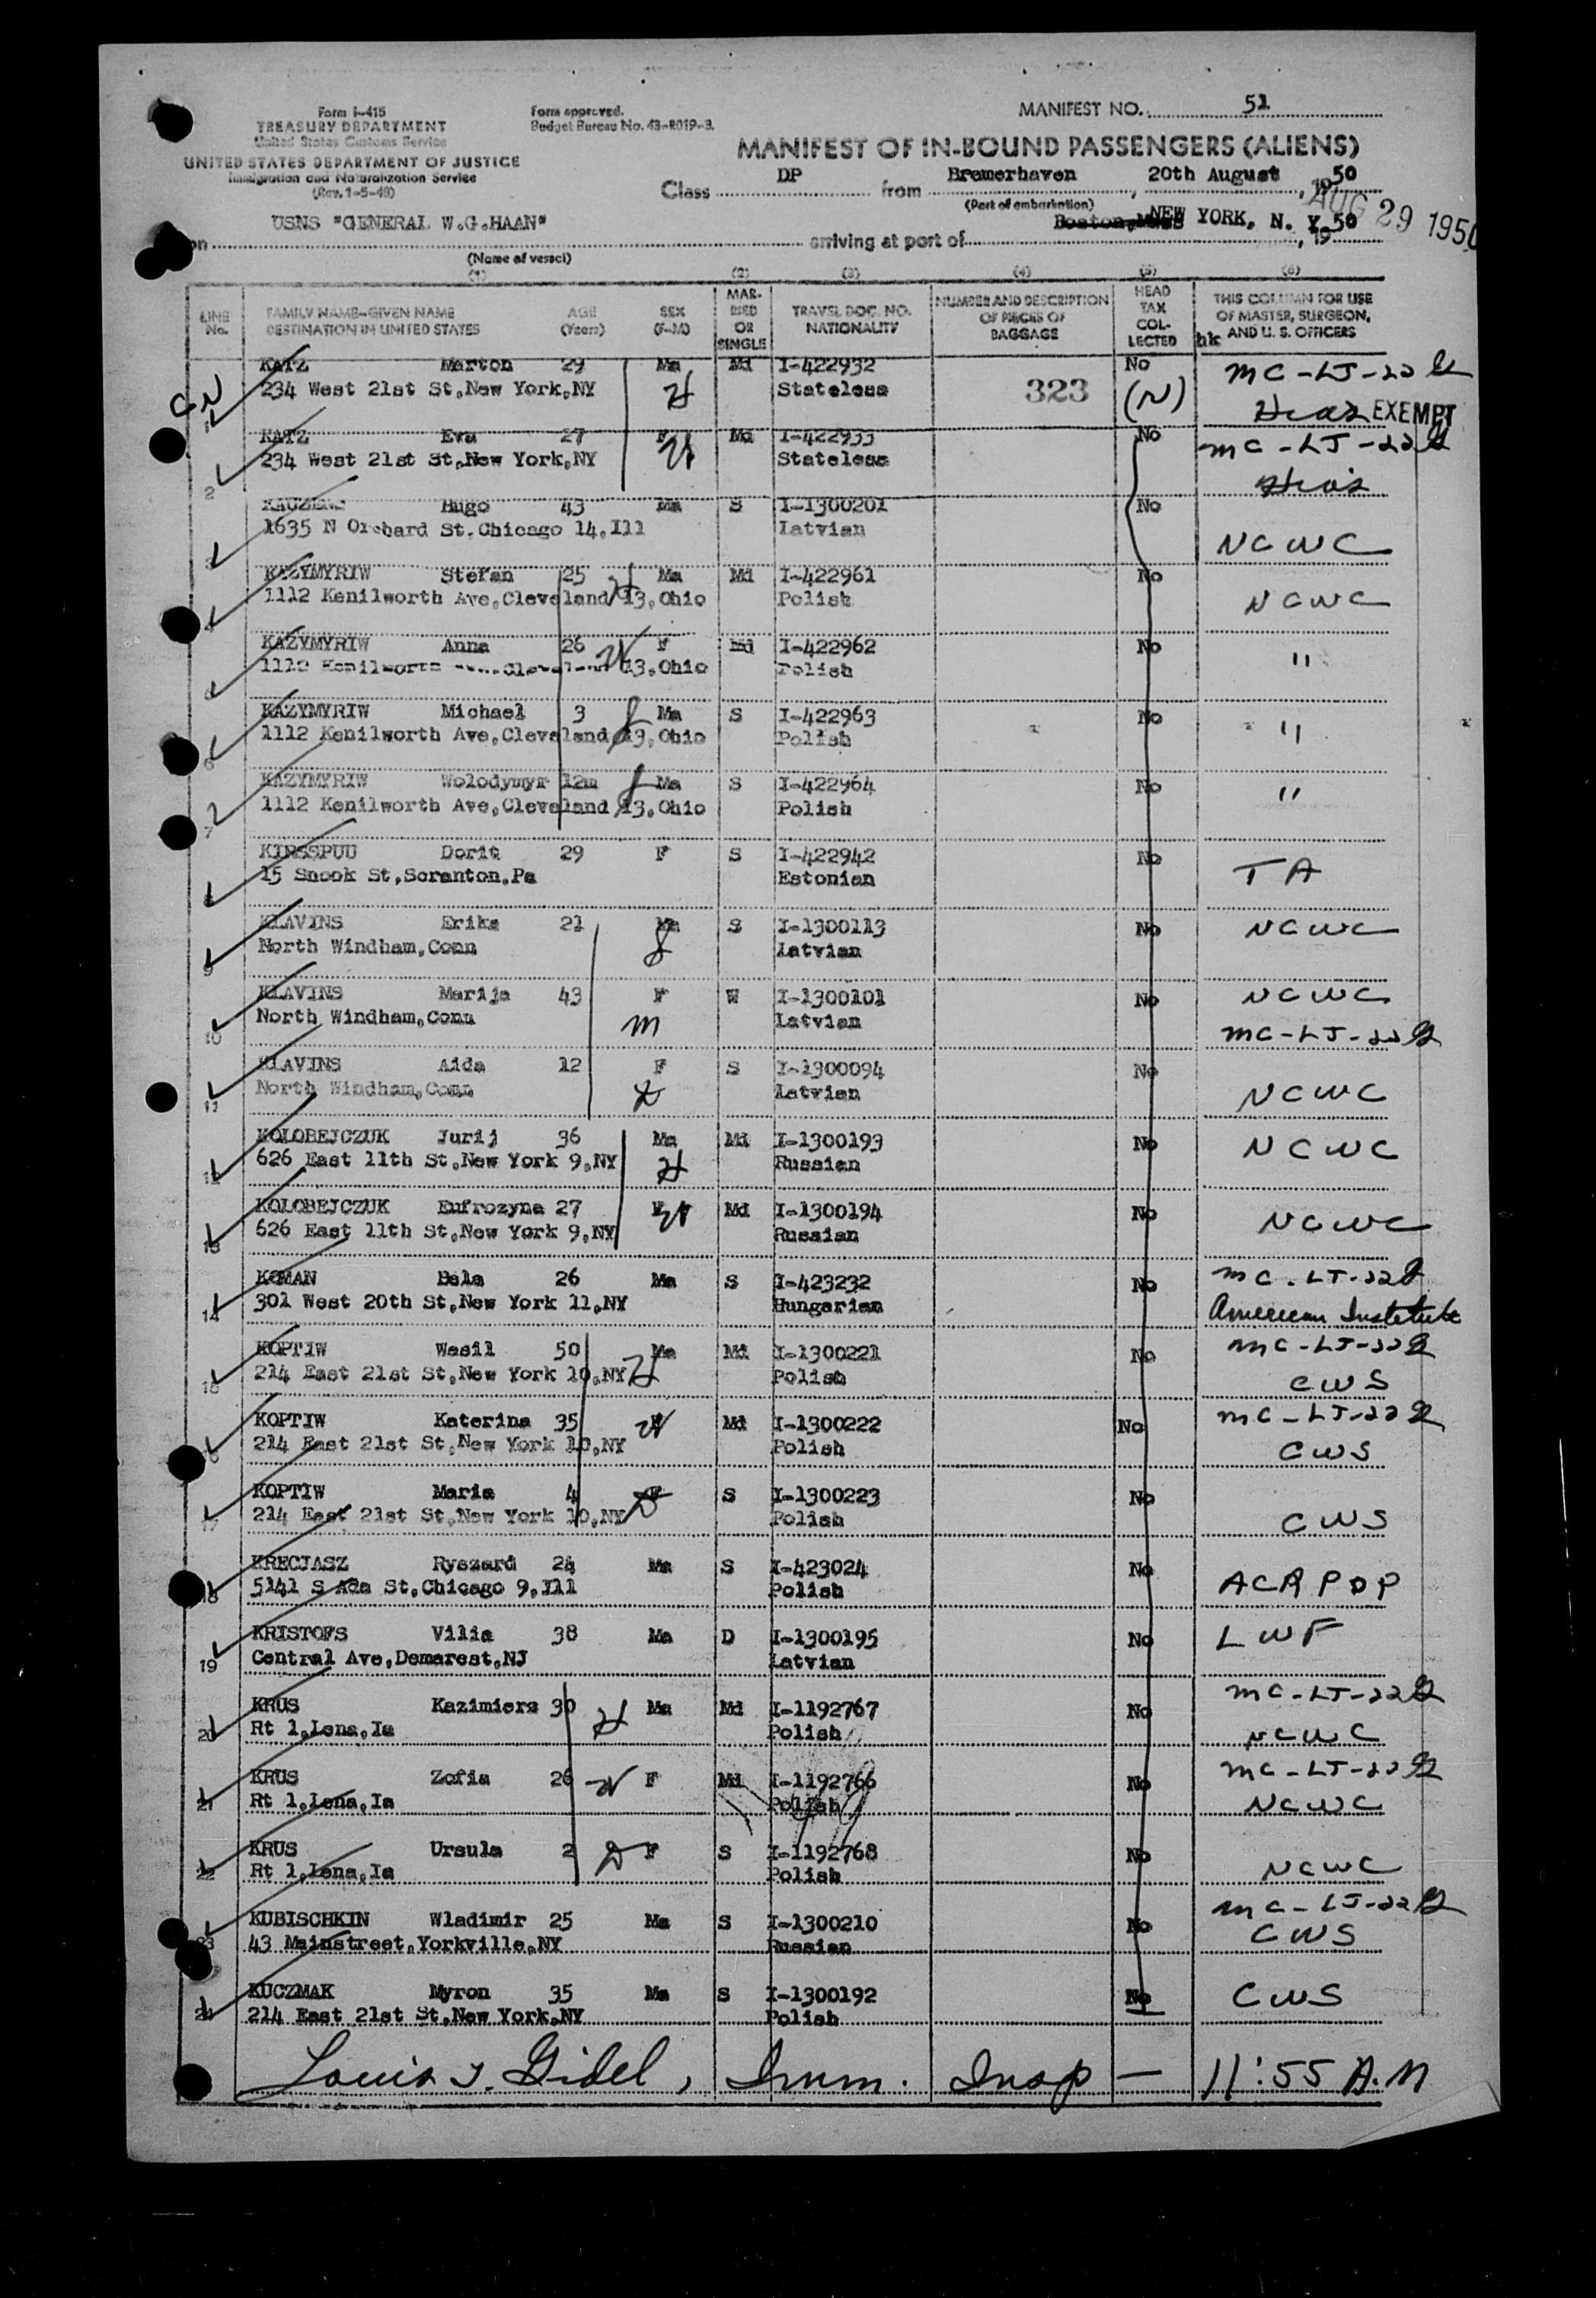 Form I-415
TREASURY DEPARTMENT
United States Customs Service
UNITED STATES DEPARTMENT OF JUSTICE
Immigration and Naturalization Service
(Rev. 1-5-49)
Form approved.
Budget Bureau No. 43-R019-3.
MANIFEST NO. 51
MANIFEST OF IN-BOUND PASSENGERS (ALIENS)
Class DP from Bremerhaven, 20th August, 1950
(Port of embarkation)
on USNS "GENERAL W.G.HAAN" arriving at port of Boston, Mass NEW YORK, N. Y. 1950 AUG 29 1950
(Name of vessel)
(1) (2) (3) (4) (5) (6)
LINE No. FAMILY NAME—GIVEN NAME DESTINATION IN UNITED STATES AGE (Years) SEX (F-M) MAR-RIED OR SINGLE TRAVEL DOC. NO. NATIONALITY NUMBER AND DESCRIPTION OF PIECES OF BAGGAGE HEAD TAX COL-LECTED THIS COLUMN FOR USE OF MASTER, SURGEON, AND U. S. OFFICERS
hk
KATZ Marton 29 Ma Md I-422932 No MC-LJ-22
234 West 21st St,New York,NY H Stateless 323 (N) Hias EXEMPT
KATZ Eva 27 F Md I-422933 No MC-LJ-22
2 234 West 21st St,New York,NY W Stateless Hias
Hugo 43 Ma S I-1300201 No
1635 N Orchard St.Chicago 14,Ill Latvian NCWC
KAZYMYRIW Stefan 25 H Ma Md I-422961 No
1112 Kenilworth Ave,Cleveland 13,Ohio Polish NCWC
KAZYMYRIW Anna 26 W F Md I-422962 No "
1112 Kenilworth Ave,Cleveland 13,Ohio Polish
KAZYMYRIW Michael 3 S Ma S I-422963 No "
6 1112 Kenilworth Ave,Cleveland 13,Ohio Polish
KAZYMYRIW Wolodymyr 12m S Ma S I-422964 No "
7 1112 Kenilworth Ave,Cleveland 13,Ohio Polish
KIRSSPUU Dorit 29 F S I-422942 No TA
15 Snook St,Scranton,Pa Estonian
KLAVINS Eriks 21 Ma S I-1300113 No NCWC
9 North Windham,Conn S Latvian
KLAVINS Marija 43 F W I-1300101 No NCWC
10 North Windham,Conn M Latvian MC-LJ-22
KLAVINS Aida 12 F S I-1300094 No
11 North Windham,Conn D Latvian NCWC
KOLOBEJCZUK Jurij 36 Ma Md I-1300193 No NCWC
12 626 East 11th St,New York 9,NY H Russian
KOLOBEJCZUK Eufrozyna 27 F W Md I-1300194 No NCWC
13 626 East 11th St,New York 9,NY Russian
KOMAN Bela 26 Ma S I-423232 No MC.LJ-22
14 301 West 20th St,New York 11,NY Hungarian American Institute
KOPTIW Wasil 50 Ma Md I-1300221 No MC-LJ-22
15 214 East 21st St,New York 10,NY H Polish CWS
KOPTIW Katerina 35 W F Md I-1300222 No MC-LJ-22
16 214 East 21st St,New York 10,NY Polish CWS
KOPTIW Maria 4 F S I-1300223 No
17 214 East 21st St,New York 10,NY D Polish CWS
KRECJASZ Ryszard 24 Ma S I-423024 No
18 5141 S Ada St,Chicago 9,Ill Polish ACRPDP
KRISTOFS Vilis 38 Ma D I-1300195 No LWF
19 Central Ave,Demarest,NJ Latvian
KRUS Kazimierz 30 H Ma Md I-1192767 No MC-LJ-22
20 Rt 1,Lena,Ia Polish NCWC
KRUS Zofia 26 W F Md I-1192766 No MC-LJ-22
21 Rt 1,Lena,Ia Polish NCWC
KRUS Ursula 2 D F S I-1192768 No
22 Rt 1,Lena,Ia Polish NCWC
KUBISCHKIN Wladimir 25 Ma S I-1300210 No MC-LJ-22
23 43 Mainstreet,Yorkville,NY Russian CWS
KUCZMAK Myron 35 Ma S I-1300192 No CWS
24 214 East 21st St,New York,NY Polish
Louis J. Gidel, Imm. Insp — 11:55 A.M